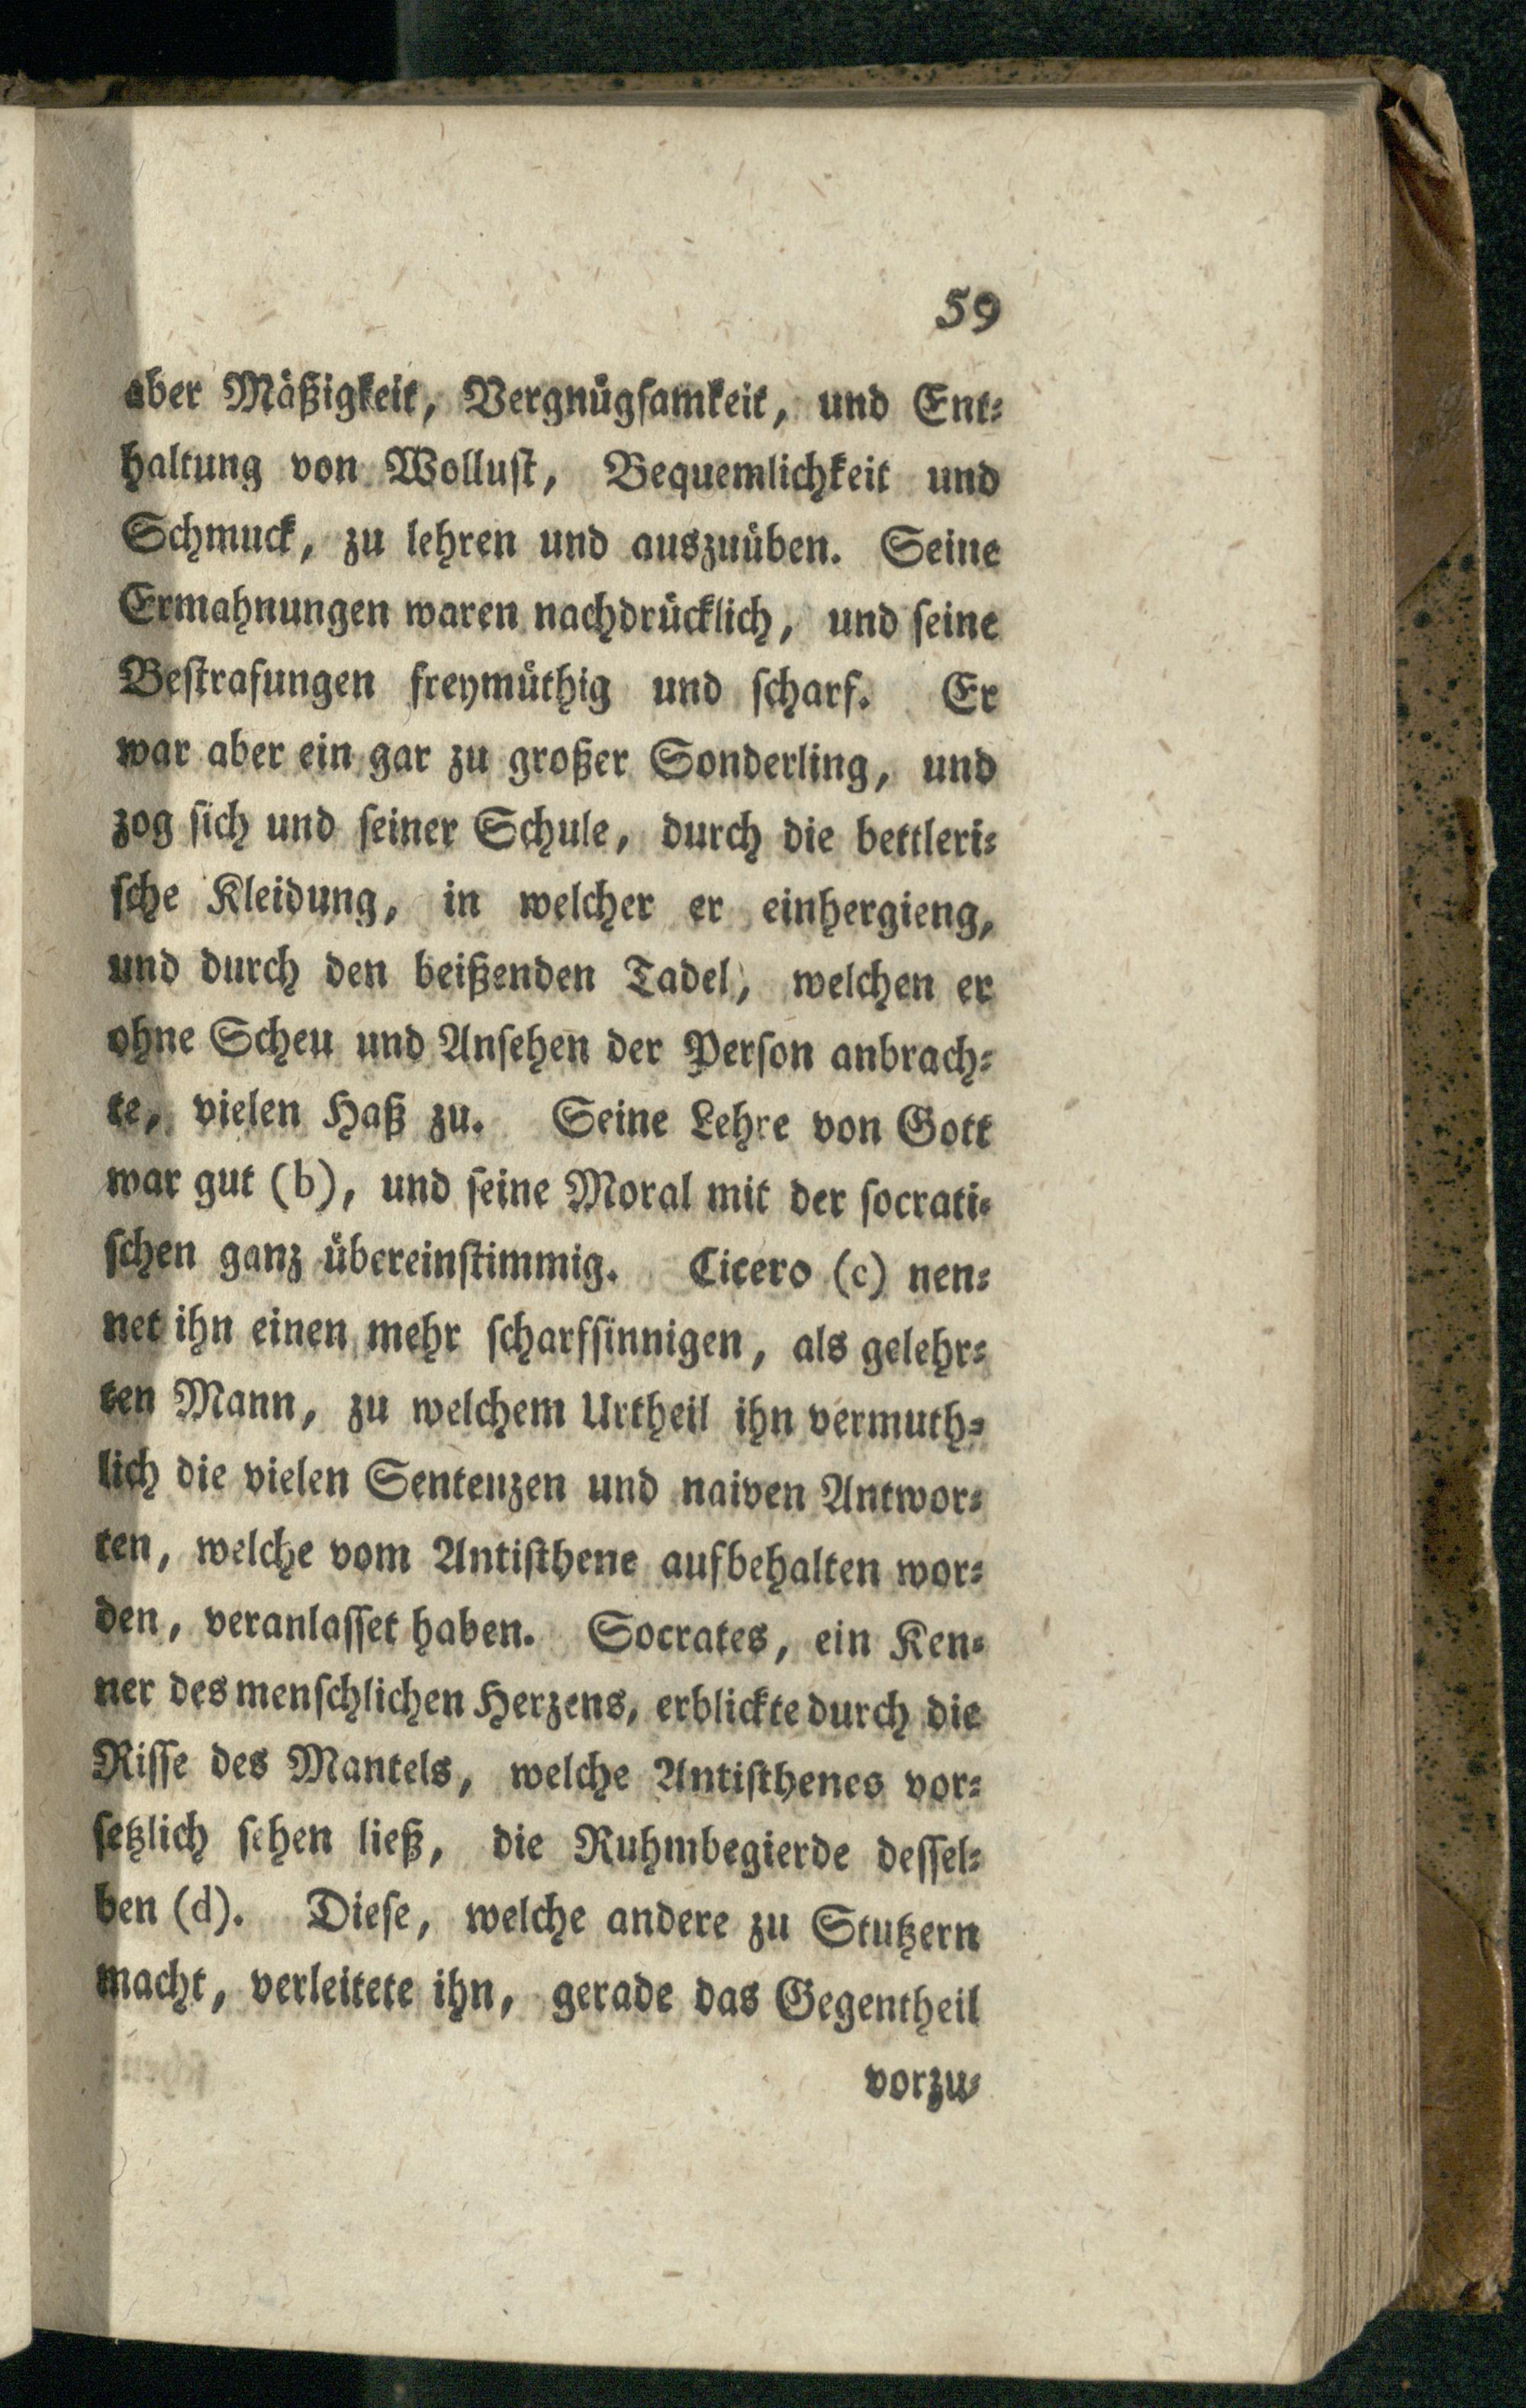 59
aber Mäßigkeit, Vergnügsamkeit, und Ent-
haltung von Wollust, Bequemlichkeit und
Schmuck, zu lehren und auszuüben. Seine
Ermahnungen waren nachdrücklich, und seine
Bestrafungen freymüthig und scharf. Er
war aber ein gar zu großer Sonderling, und
zog sich und seiner Schule, durch die bettleri-
sche Kleidung, in welcher er einhergieng,
und durch den beißenden Tadel, welchen er
ohne Scheu und Ansehen der Person anbrach-
te, vielen Haß zu. Seine Lehre von Gott
war gut (b), und seine Moral mit der socrati-
schen ganz übereinstimmig. Cicero (c) nen-
net ihn einen mehr scharfsinnigen, als gelehr-
ten Mann, zu welchem Urtheil ihn vermuth-
lich die vielen Sentenzen und naiven Antwor-
ten, welche vom Antisthene aufbehalten wor-
den, veranlasset haben. Socrates, ein Ken-
ner des menschlichen Herzens, erblickte durch die
Risse des Mantels, welche Antisthenes vor-
setzlich sehen ließ, die Ruhmbegierde dessel-
ben (d). Diese, welche andere zu Stutzern
macht, verleitete ihn, gerade das Gegentheil
vorzu-